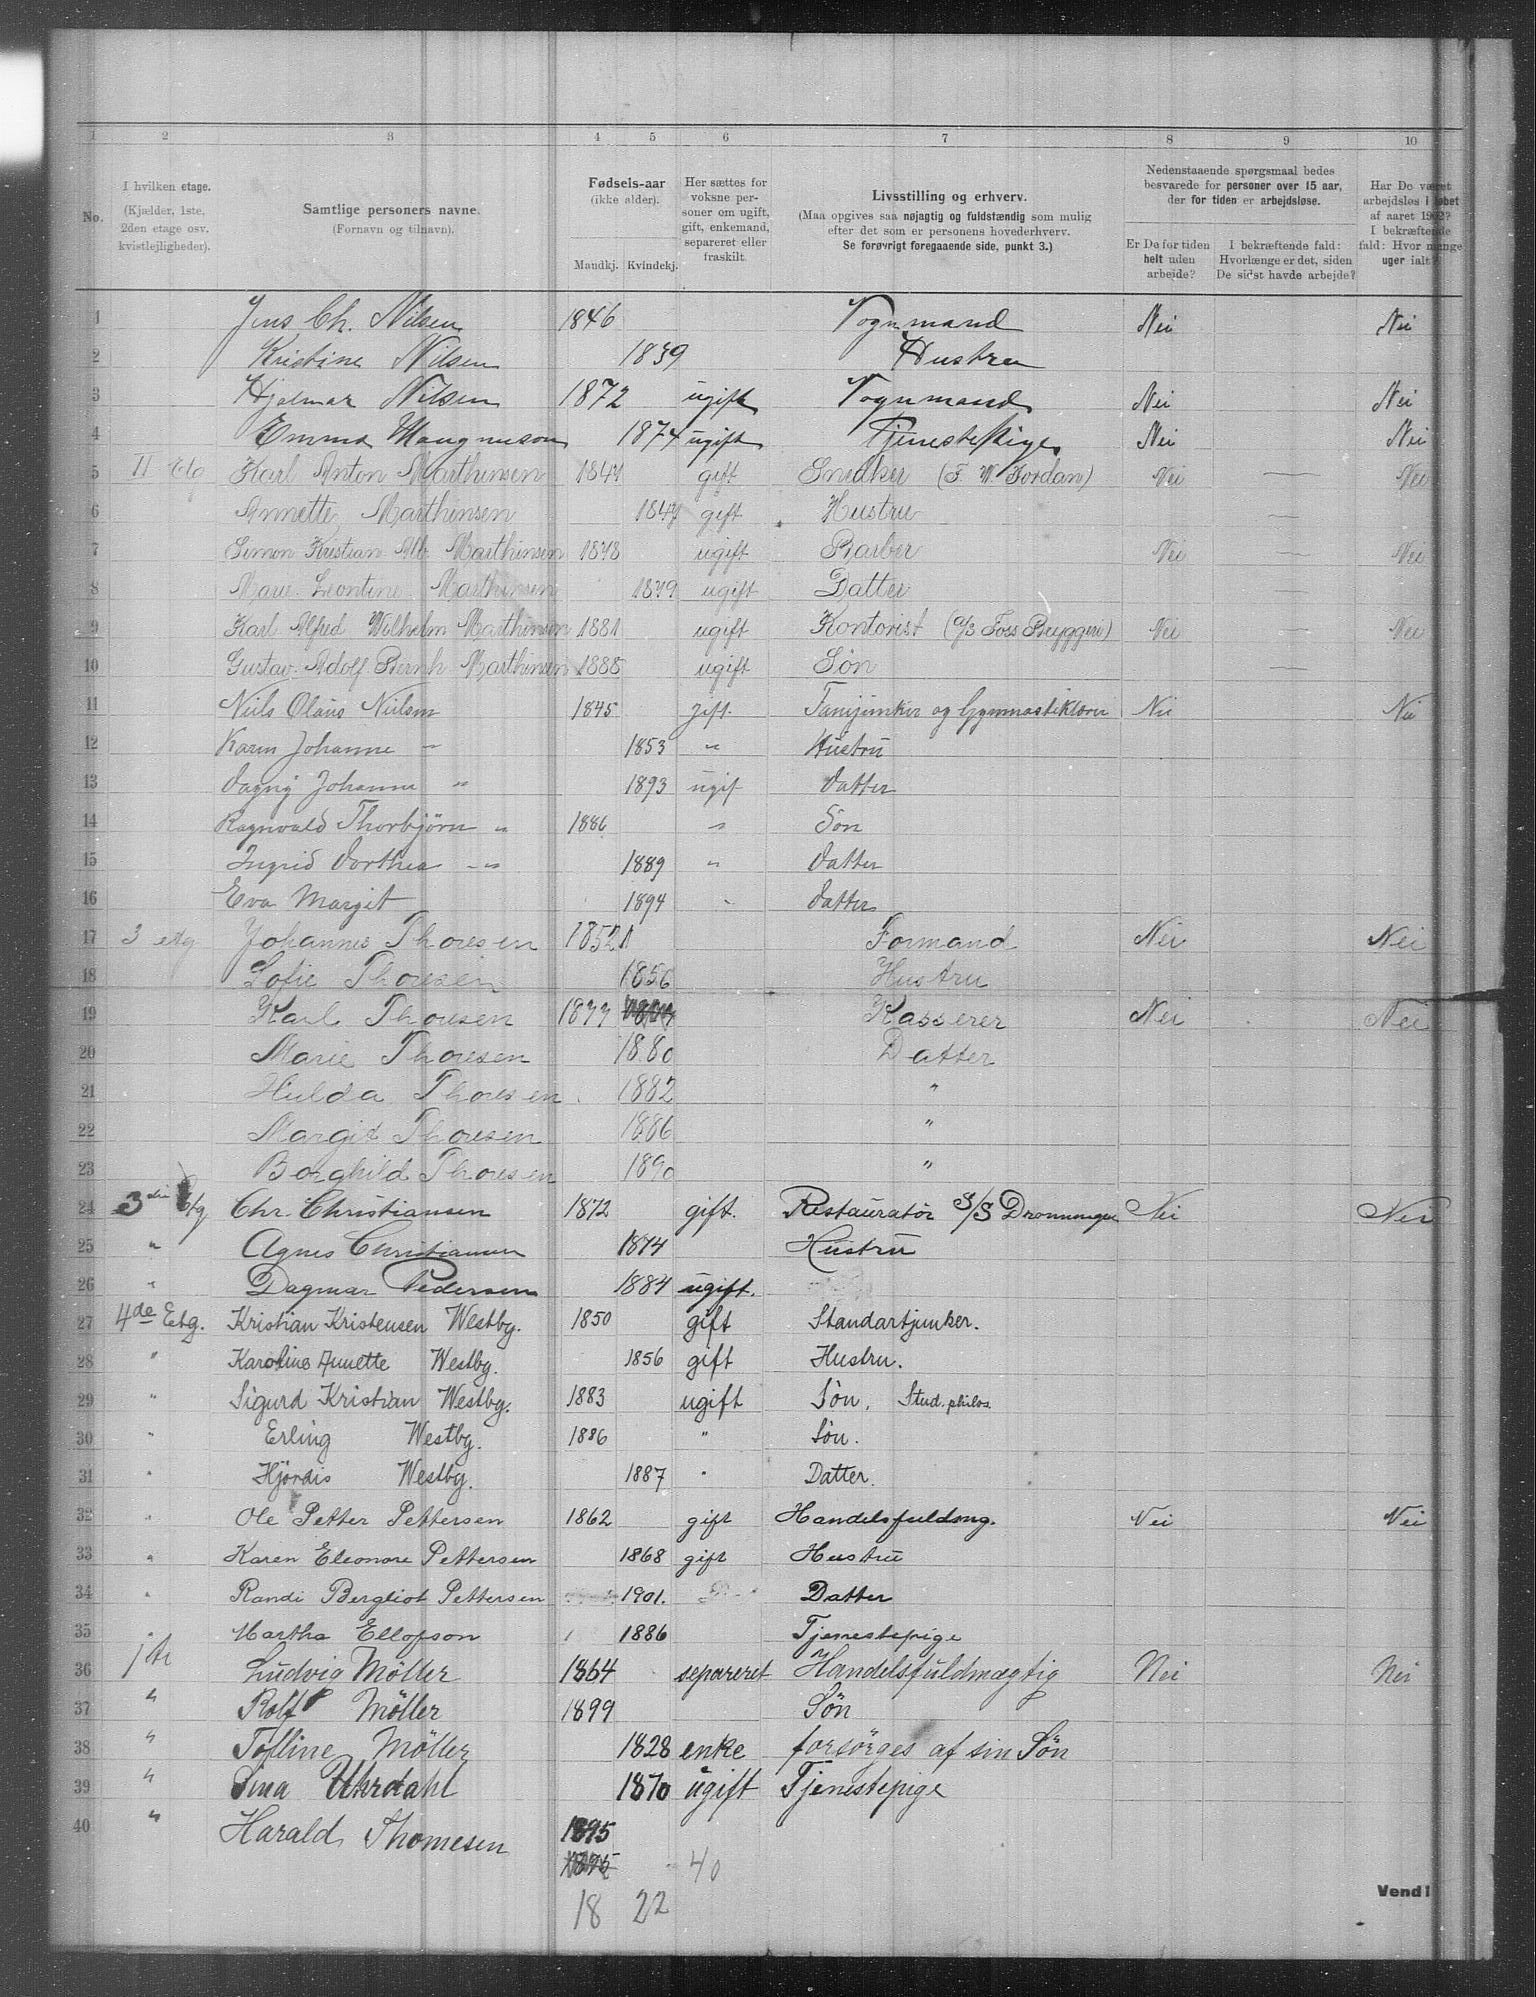 1 2 3 4 5 6 7 8 9 10
No.
I hvilken etage.
(Kjælder, 1ste,
2den etage osv.
kvistlejligheder).
Samtlige personers navne.
(Fornavn og tilnavn).
Fødsels-aar
(ikke alder).
Mandkj. Kvindekj.
Her sættes for
voksne per-
soner om ugift,
gift, enkemand,
separeret eller
fraskilt.
Livsstilling og erhverv.
(Maa opgives saa nøjagtig og fuldstændig som mulig
efter det som er personens hovederhverv.
Se forøvrigt foregaaende side, punkt 3.)
Nedenstaaende spørgsmaal bedes
besvarede for personer over 15 aar,
der for tiden er arbejdsløse.
Er De for tiden
helt uden
arbejde?
I bekræftende fald:
Hvorlænge er det, siden
De sidst havde arbejde?
Har De været
arbejdsløs i løbet
af aaret 1902?
I bekræftende
fald: Hvor mange
uger ialt?
1 Jens Ch. Nilsen 1846 Vognmand Nei Nei
2 Kristine Nilsen 1839 Hustru
3 Hjalmar Nilsen 1872 ugift Vognmand Nei Nei
4 Emma Maugnuson 1874 ugift Tjenestepige Nei Nei
5 II etg Karl Anton Marthinsen 1847 gift Snedker (F. W. Jordan) Nei — Nei
6 Annette Marthinsen 1847 gift Hustru —
7 Simon Kristian Alb. Marthinsen 1878 ugift Barber Nei — Nei
8 Marie Leontine Marthinsen 1879 ugift Datter —
9 Karl Alfred Wilhelm Marthinsen 1881 ugift Kontorist (A/S Foss Bryggeri) Nei — Nei
10 Gustav Adolf Bernh Marthinsen 1888 ugift Søn —
11 Niels Olaus Nielsen 1845 gift. Fanejunker og Gymnastiklærer Nei Nei
12 Karen Johanne " 1853 " Hustru
13 Dagny Johanne " 1893 ugif Datter
14 Ragnvald Thorbjørn " 1886 " Søn
15 Ingrid Dorthea " 1889 " Datter
16 Eva Margit 1894 " Datter
17 3 etg Johannes Thoresen 1852 Formand Nei Nei
18 Sofie Thoresen 1856 Hustru
19 Karl Thoresen 1877 Kasserer Nei Nei
20 Marie Thoresen 1880 Datter
21 Hulda Thoresen 1882 "
22 Margit Thoresen 1886 "
23 Borghild Thoresen 1890 "
24 3die Etg Chr. Christiansen 1872 gift. Restauratør S/S Dronningen Nei Nei
25 " Agnes Christiansen 1874 Hustru
26 " Dagmar Pedersen 1884 ugift.
27 4de Etg. Kristian Kristensen Westby. 1850 gift Standartjunker.
28 " Karoline Annette Westby. 1856 gift Hustru.
29 " Sigurd Kristian Westby. 1883 ugift Søn, Stud. philos.
30 " Erling Westby. 1886 " Søn.
31 " Hjørdis Westby. 1887 " Datter.
32 " Ole Petter Pettersen 1862 gift Handelsfuldmg. Nei Nei
33 " Karen Eleonore Pettersen 1868 gift Hustru
34 " Randi Bergliot Pettersen 1901. Datter
35 " Martha Ellofson 1886 Tjenestepige
36 1ste Ludvig Möller 1864 separeret Handelsfuldmægtig Nei Nei
37 " Rolf Möller 1899 Søn
38 " Tolline Möller 1828 enke forsørges af sin Søn
39 " Sina Uhrdahl 1870 ugift Tjenestepige
40 " Harald Thomesen 1895
40
18 22
Vend!